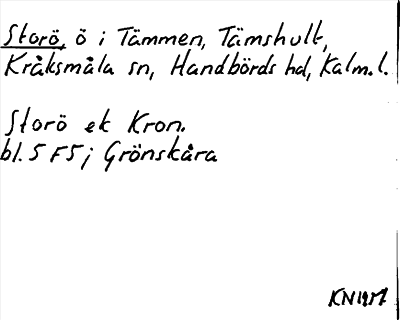 Storö, ö i Tämmen, Tämshult,
Kråksmåla sn, Handbörds hd, Kalm. l.
Storö ek Kron.
bl. 5 F5j Grönskåra